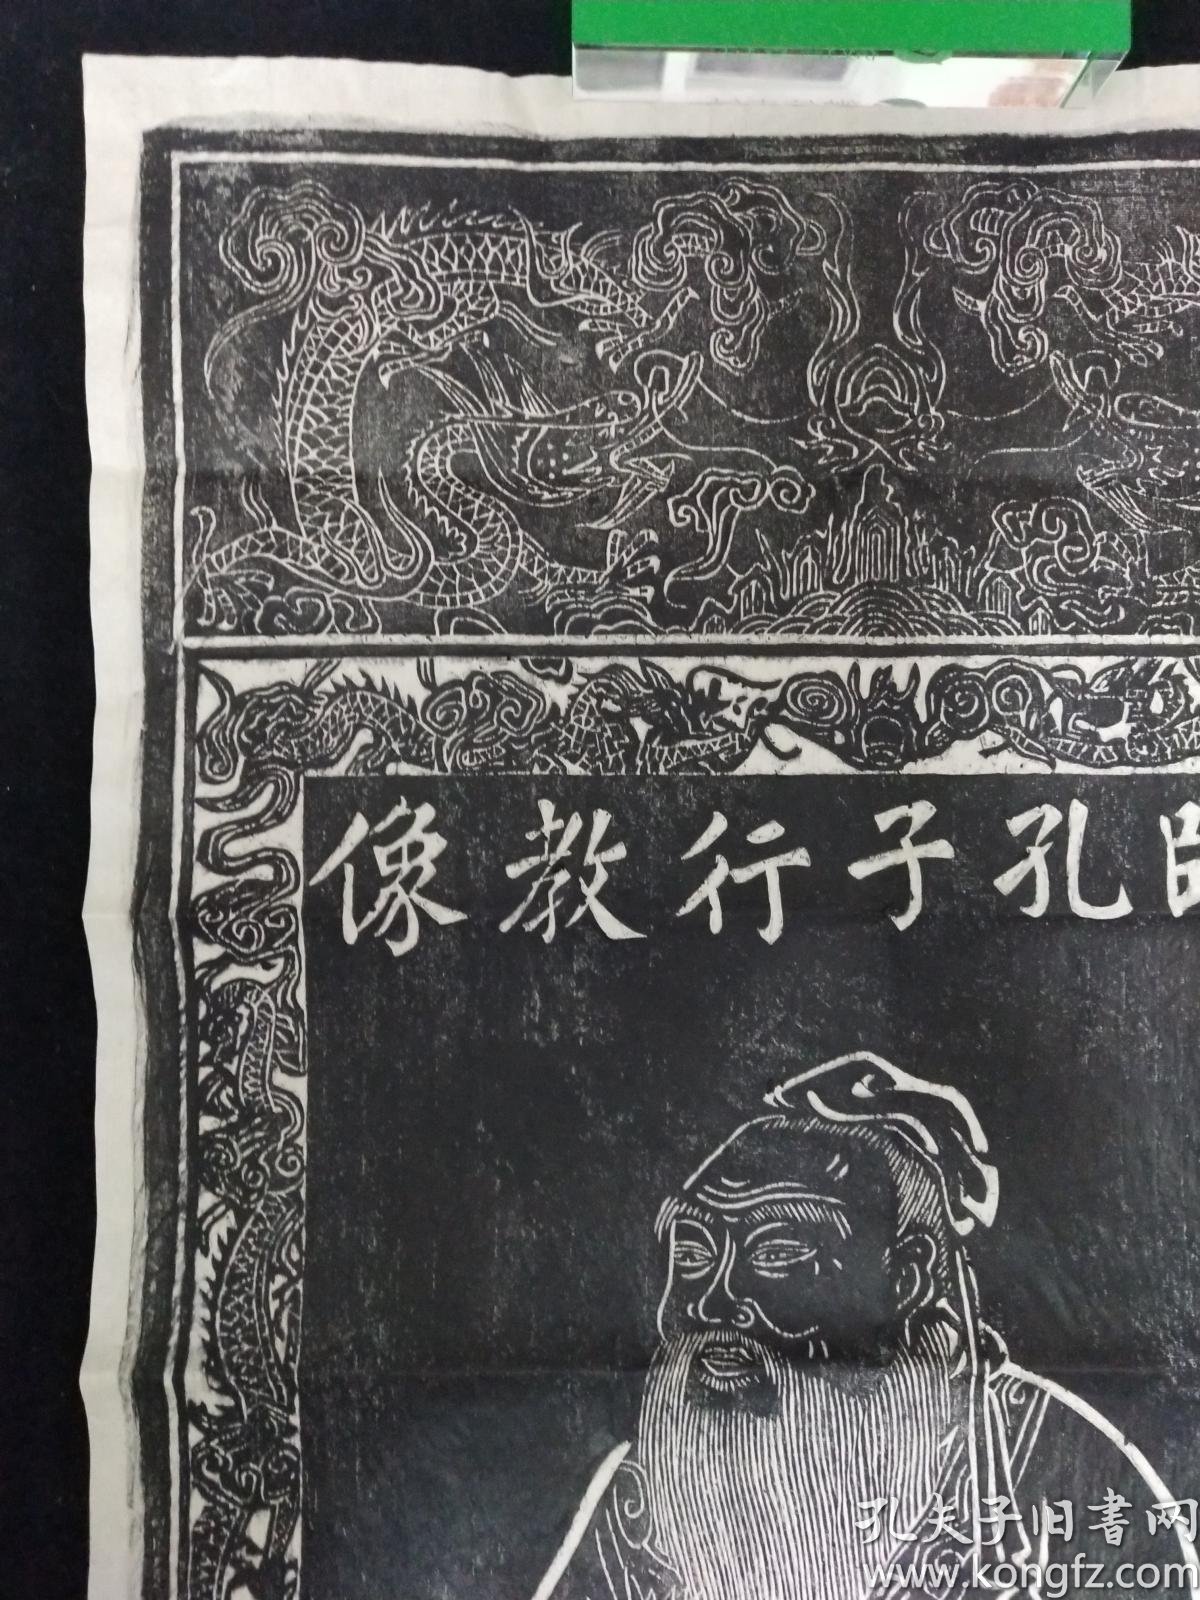 孔子行教像
孔夫子旧书网
www.kongfz.com